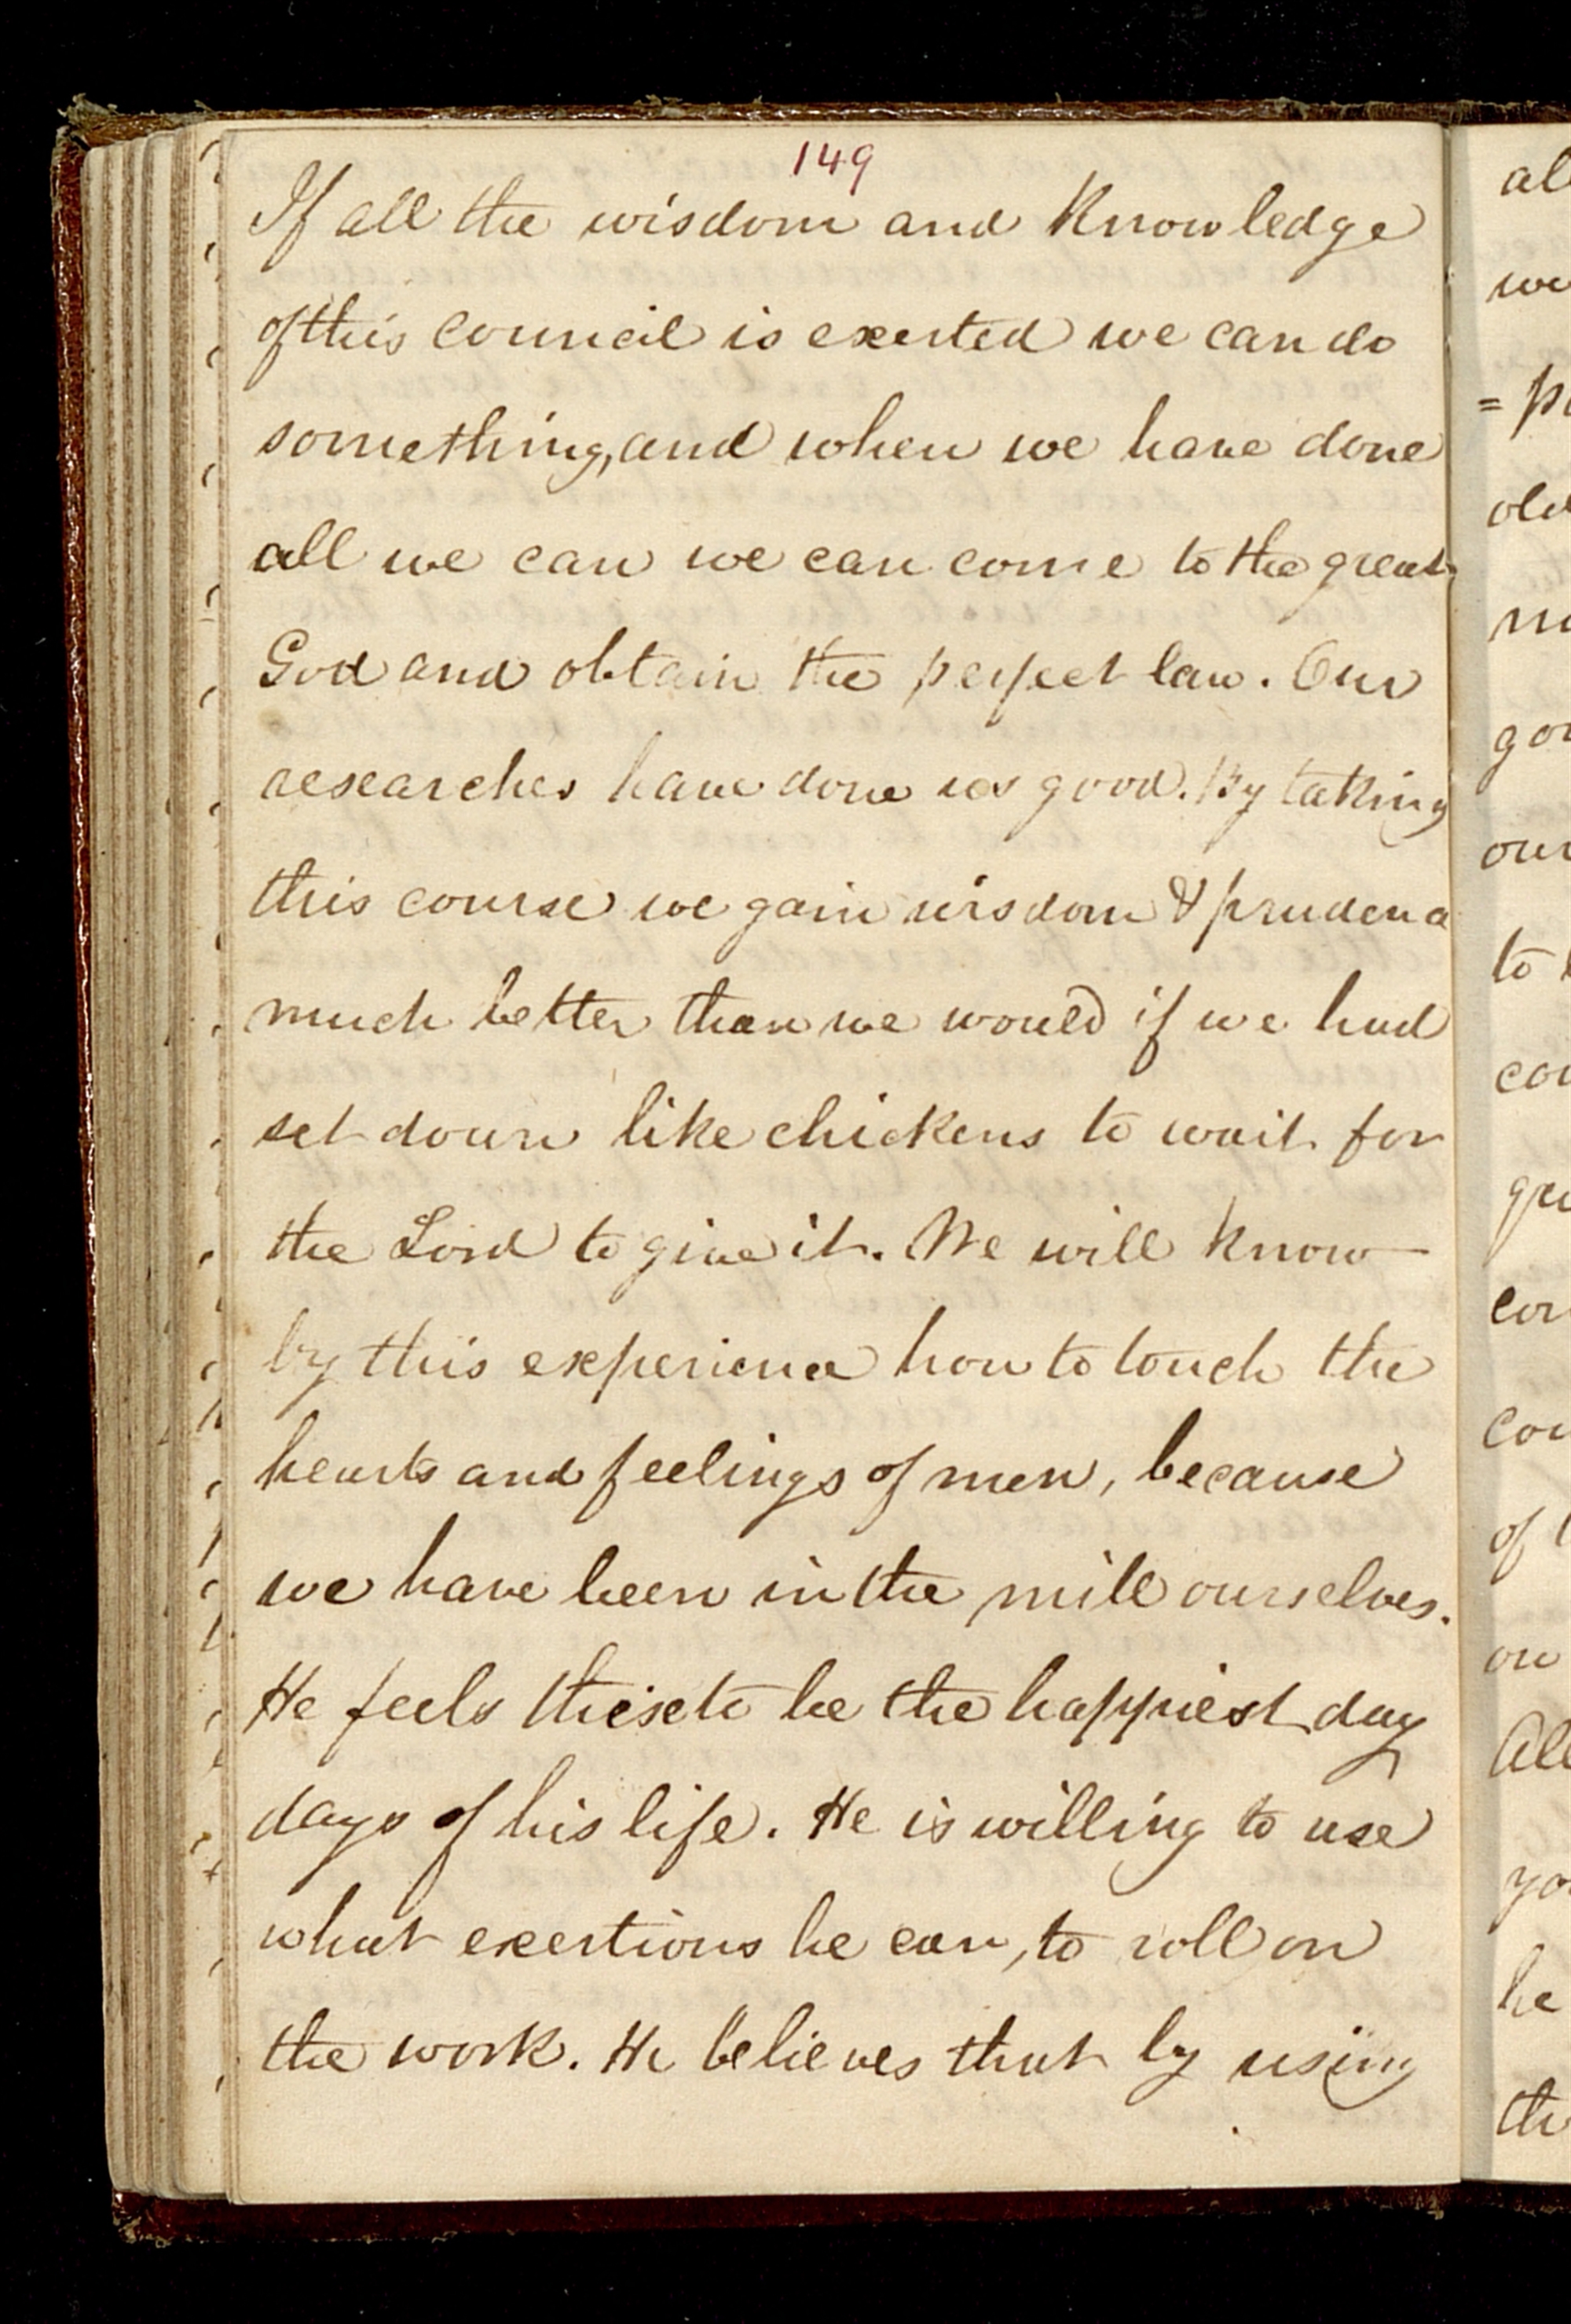 149
If all the wisdom and knowledge
of this council is exerted we can do
something, and when we have done
all we can we can come to the great
God and obtain the perfect law. Our
researches have done us good. By taking
this course we gain wisdom & prudence
much better than we would if we had
set down like chickens to wait for
the Lord to give it. We will know
by this experience how to touch the
hearts and feelings of men, because
we have been in the mill ourselves.
He feels these to be the happiest day
days of his life. He is willing to use
what exertions he can, to roll on
the work. He believes that by using
al
we
= p
old
no
go
our
to
co
gre
con
cou
of
on
All
yo
he
th